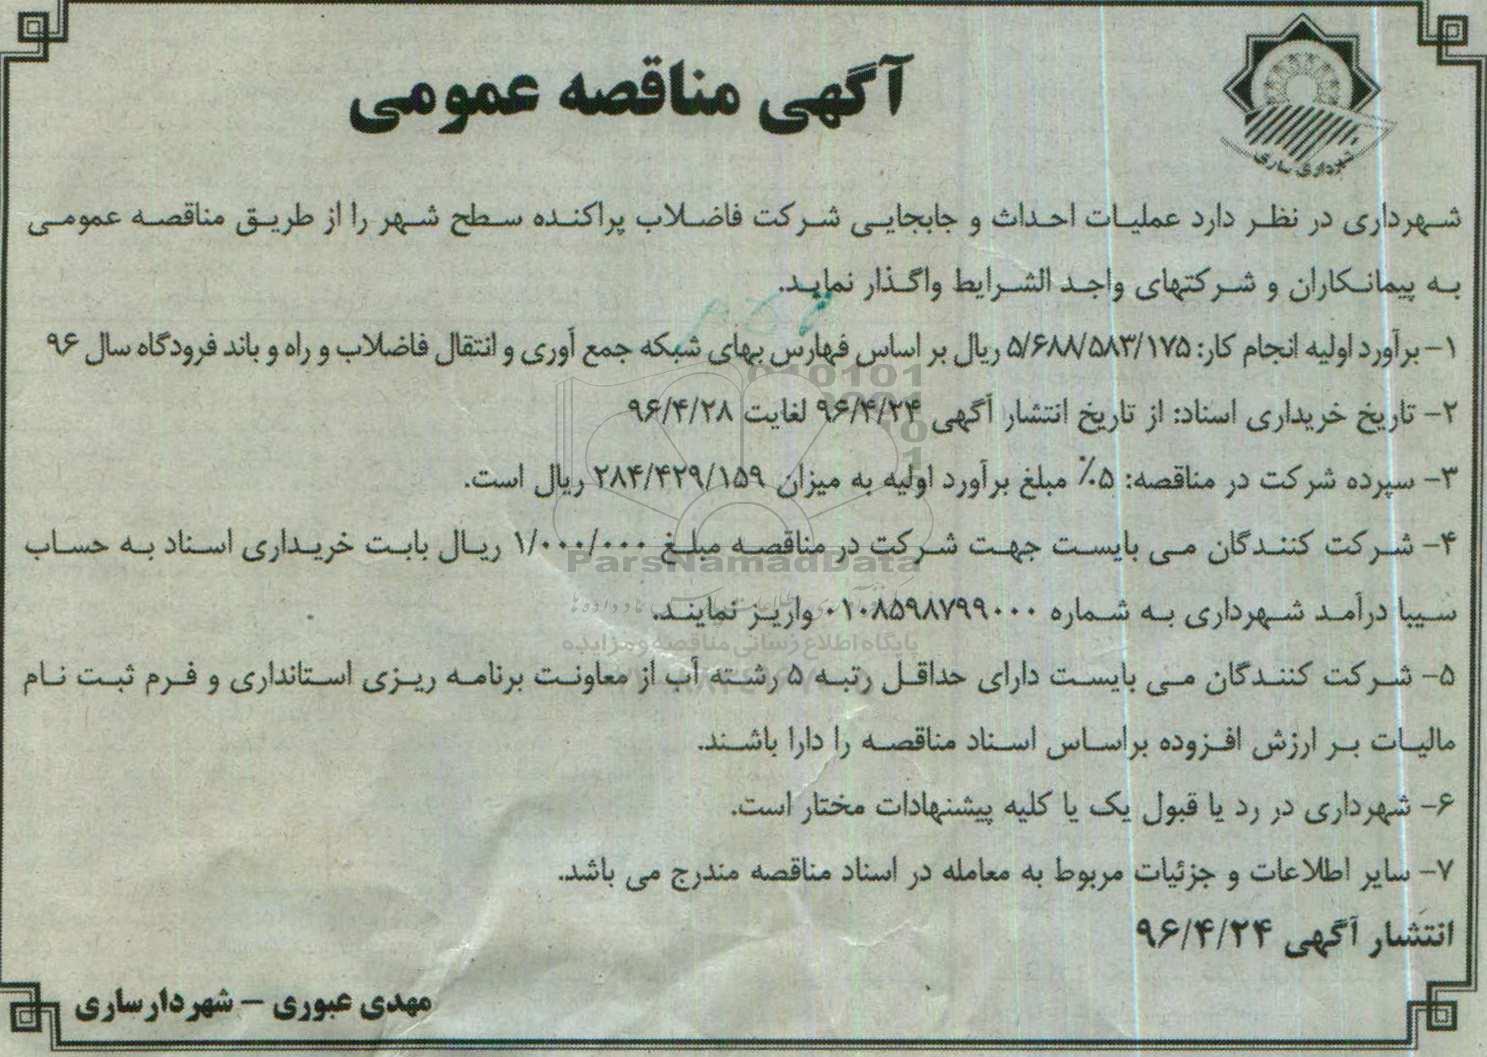 شهرداری ساری
آگهی مناقصه عمومی
شهرداری در نظر دارد عملیات احداث و جابجایی شرکت فاضلاب پراکنده سطح شهر را از طریق مناقصه عمومی
به پیمانکاران و شرکتهای واجد الشرایط واگذار نماید.
۱- برآورد اولیه انجام کار: ۵/۶۸۸/۵۸۳/۱۷۵ ریال بر اساس فهارس بهای شبکه جمع آوری و انتقال فاضلاب و راه و باند فرودگاه سال ۹۶
۲- تاریخ خریداری اسناد: از تاریخ انتشار آگهی ۹۶/۴/۲۴ لغایت ۹۶/۴/۲۸
۳- سپرده شرکت در مناقصه: ۵٪ مبلغ برآورد اولیه به میزان ۲۸۴/۴۲۹/۱۵۹ ریال است.
۴- شرکت کنندگان می بایست جهت شرکت در مناقصه مبلغ ۱/۰۰۰/۰۰۰ ریال بابت خریداری اسناد به حساب
ParsNamadData
سیبا درآمد شهرداری به شماره ۰۱۰۸۵۹۸۷۹۹۰۰۰ واریز نمایند.
پایگاه اطلاع رسانی مناقصه و مزایده
۵- شرکت کنندگان می بایست دارای حداقل رتبه ۵ رشته آب از معاونت برنامه ریزی استانداری و فرم ثبت نام
مالیات بر ارزش افزوده براساس اسناد مناقصه را دارا باشند.
۶- شهرداری در رد یا قبول یک یا کلیه پیشنهادات مختار است.
۷- سایر اطلاعات و جزئیات مربوط به معامله در اسناد مناقصه مندرج می باشد.
انتشار آگهی ۹۶/۴/۲۴
مهدی عبوری - شهردار ساری